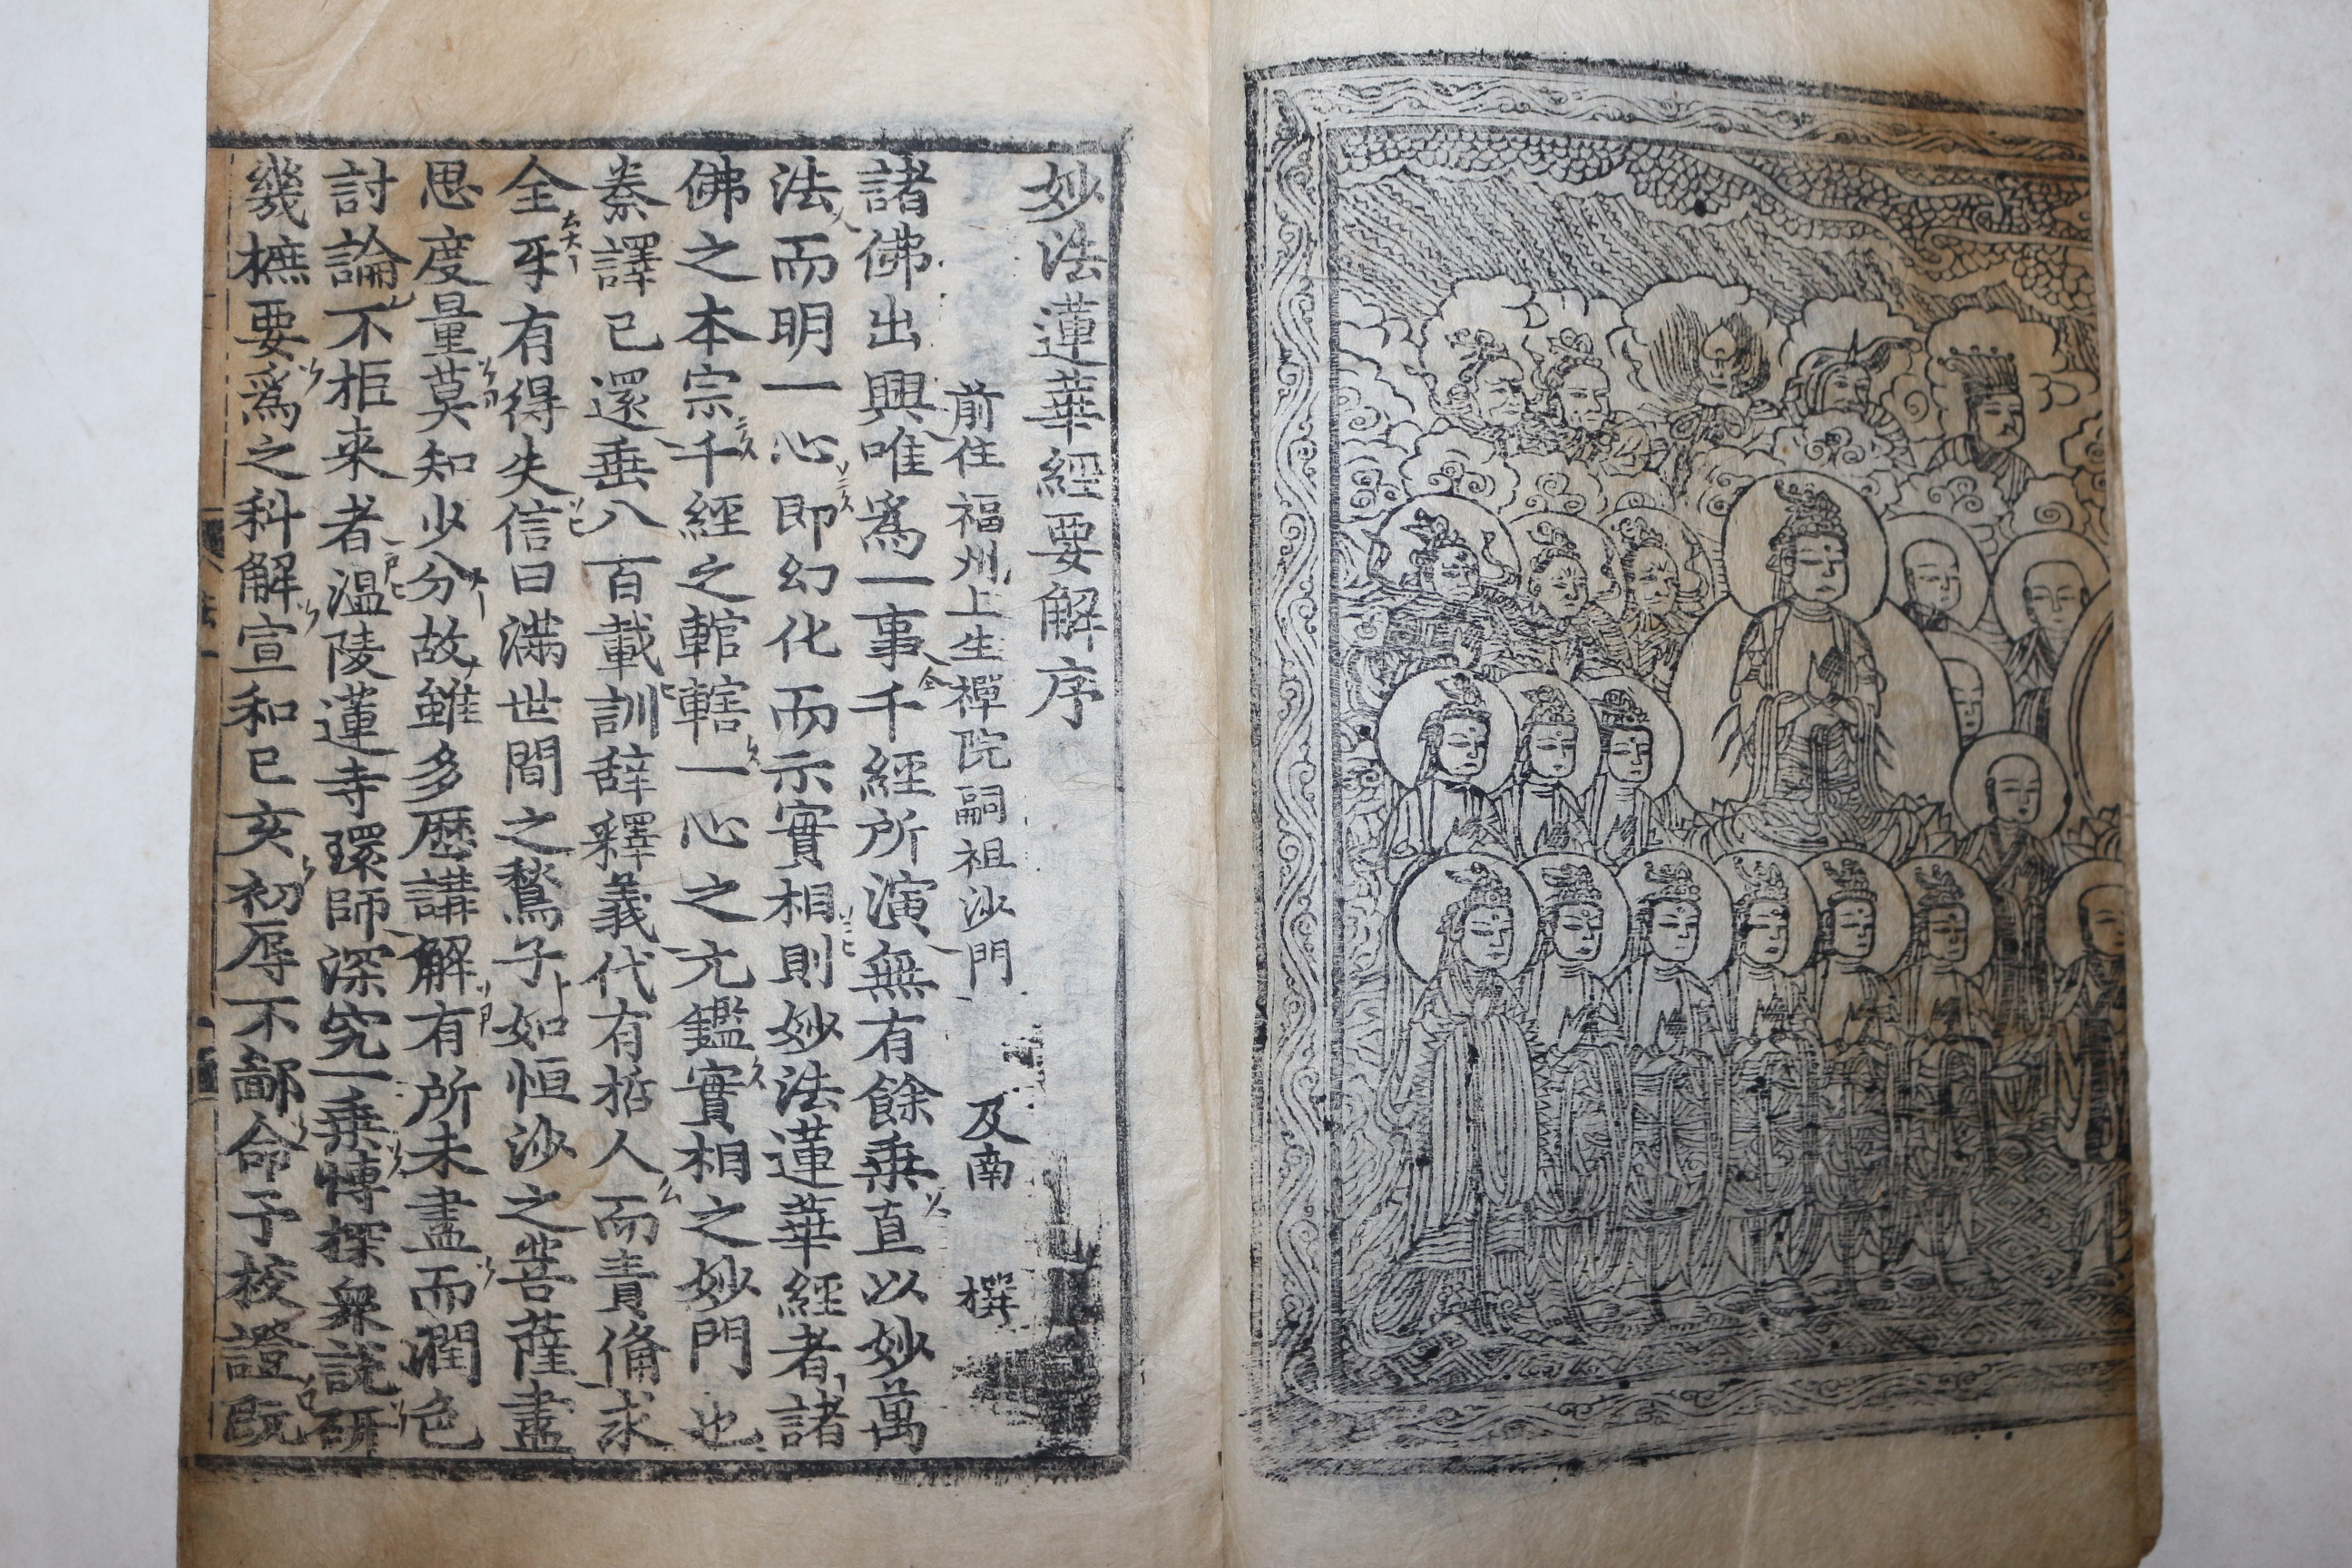 妙法蓮華經要解序
前住福州上生禪院嗣祖沙門 及南 撰
諸佛出興唯爲一事千經所演無有餘乗直以妙萬
法而明一心即幻化而示實相則妙法蓮華經者諸
佛之本宗千經之輨轄一心之元鑑實相之妙門也
秦譯已還垂八百載訓辞釋義代有哲人而責俻求
全互有得失信曰滿世間之鶖子如恒沙之菩薩盡
思度量莫知少分故雖多歷講解有所未盡而潤色
討論不拒来者溫陵蓮寺環師深究一乗愽探衆說研
幾摭要爲之科解宣和己亥初辱不鄙命予挍證旣